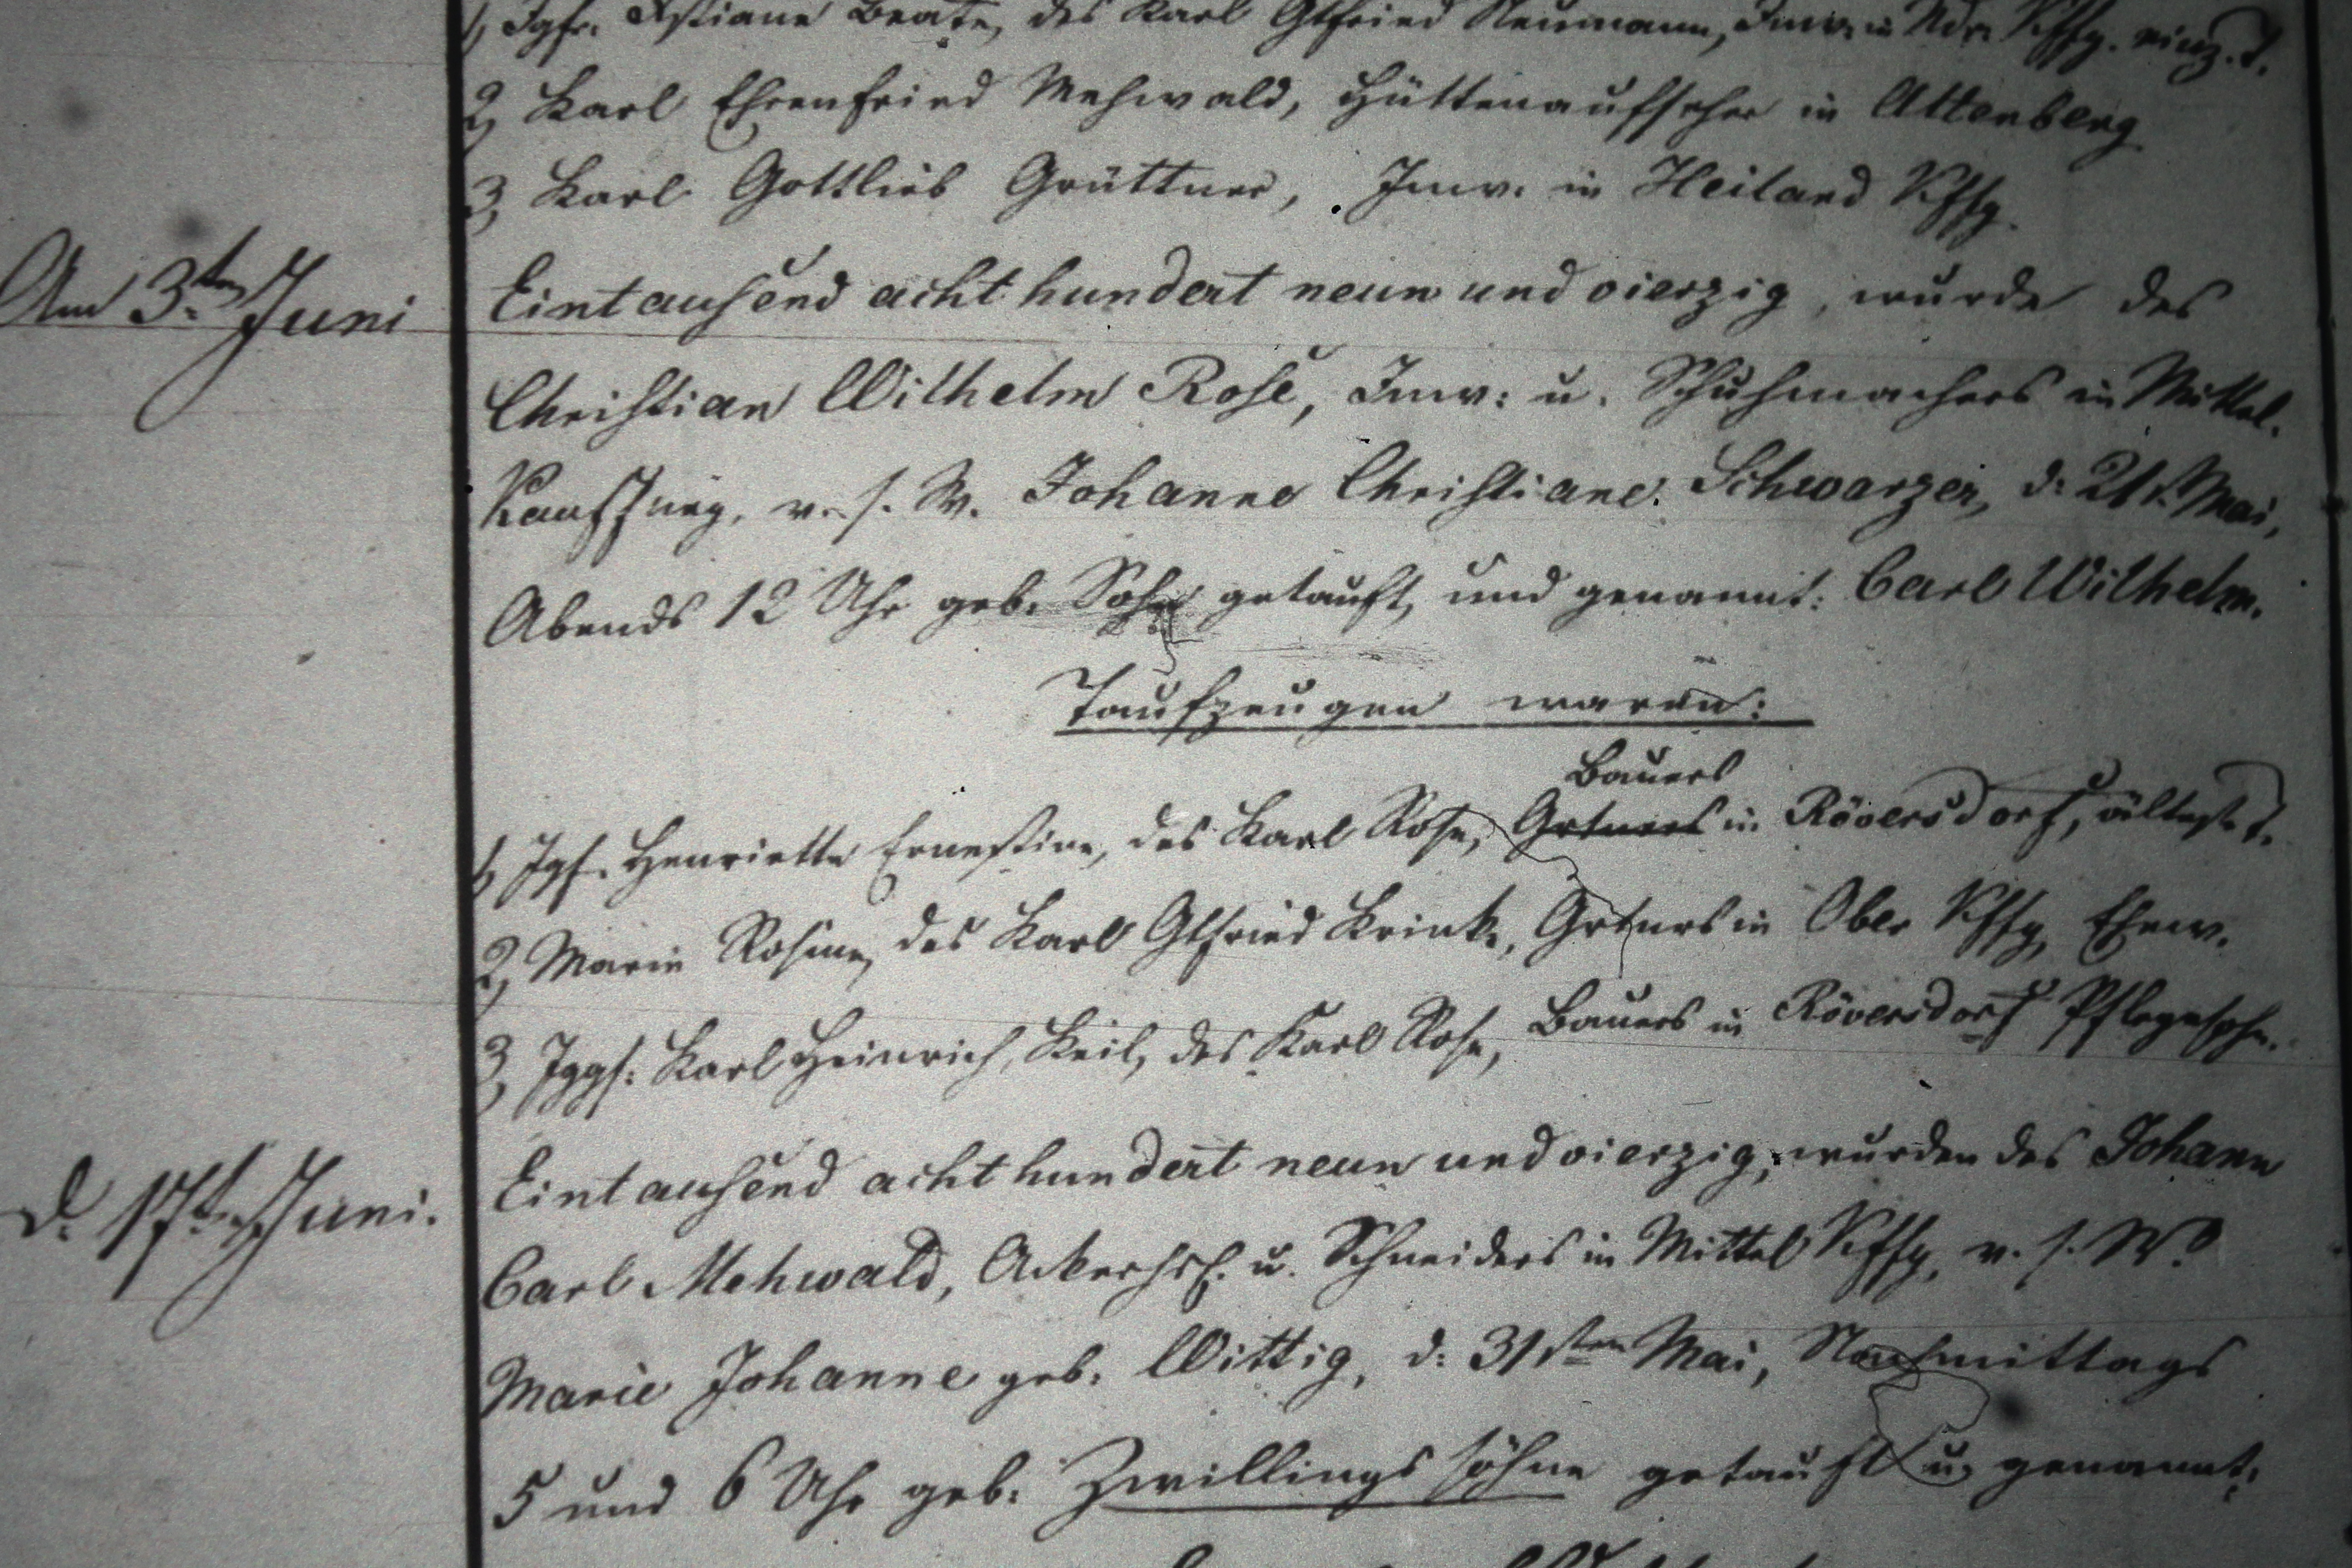 1, Jgfr. Xstiane Beate, des Karl Gtfried Neumann, Inw. in Ndr. Kffg. einz. T.
2, Karl Ehrenfried Mehwald, Hüttenaufseher in Altenberg
3, Karl Gottlieb Grüttner, Inw. in Heiland Kffg.
Am 3ten Juni Eintausend acht hundert neun und vierzig, wurde des
Christian Wilhelm Rose, Inw: u. Schuhmachers in Mittel-
Kauffung, v. s. W. Johanne Christiane Schwarzer, d: 21t. Mai,
Abends 12 Uhr geb. Sohn getauft, und genannt: Carl Wilhelm.
Taufzeugen waren:
Bauers
1, Jgf. Henriette Ernestine, des Karl Rose, Grtners in Röversdorf, älteste T.
2, Marie Rosine, des Karl Gtfried Krinke, Grtners in Ober Kffg, Ehew.
3, Jggs: Karl Heinrich Keil, des Karl Rose, Bauers in Röversdorf Pflegesohn.
d. 17t. Juni. Eintausend acht hundert neun und vierzig, wurden des Johann
Carl Mehwald, u. Schneiders in Mittel Kffg, v. s. W.
Marie Johanne geb. Wittig, d: 31sten Mai, Nachmittags
5 und 6 Uhr geb. Zwillings söhne getauft u. genannt: